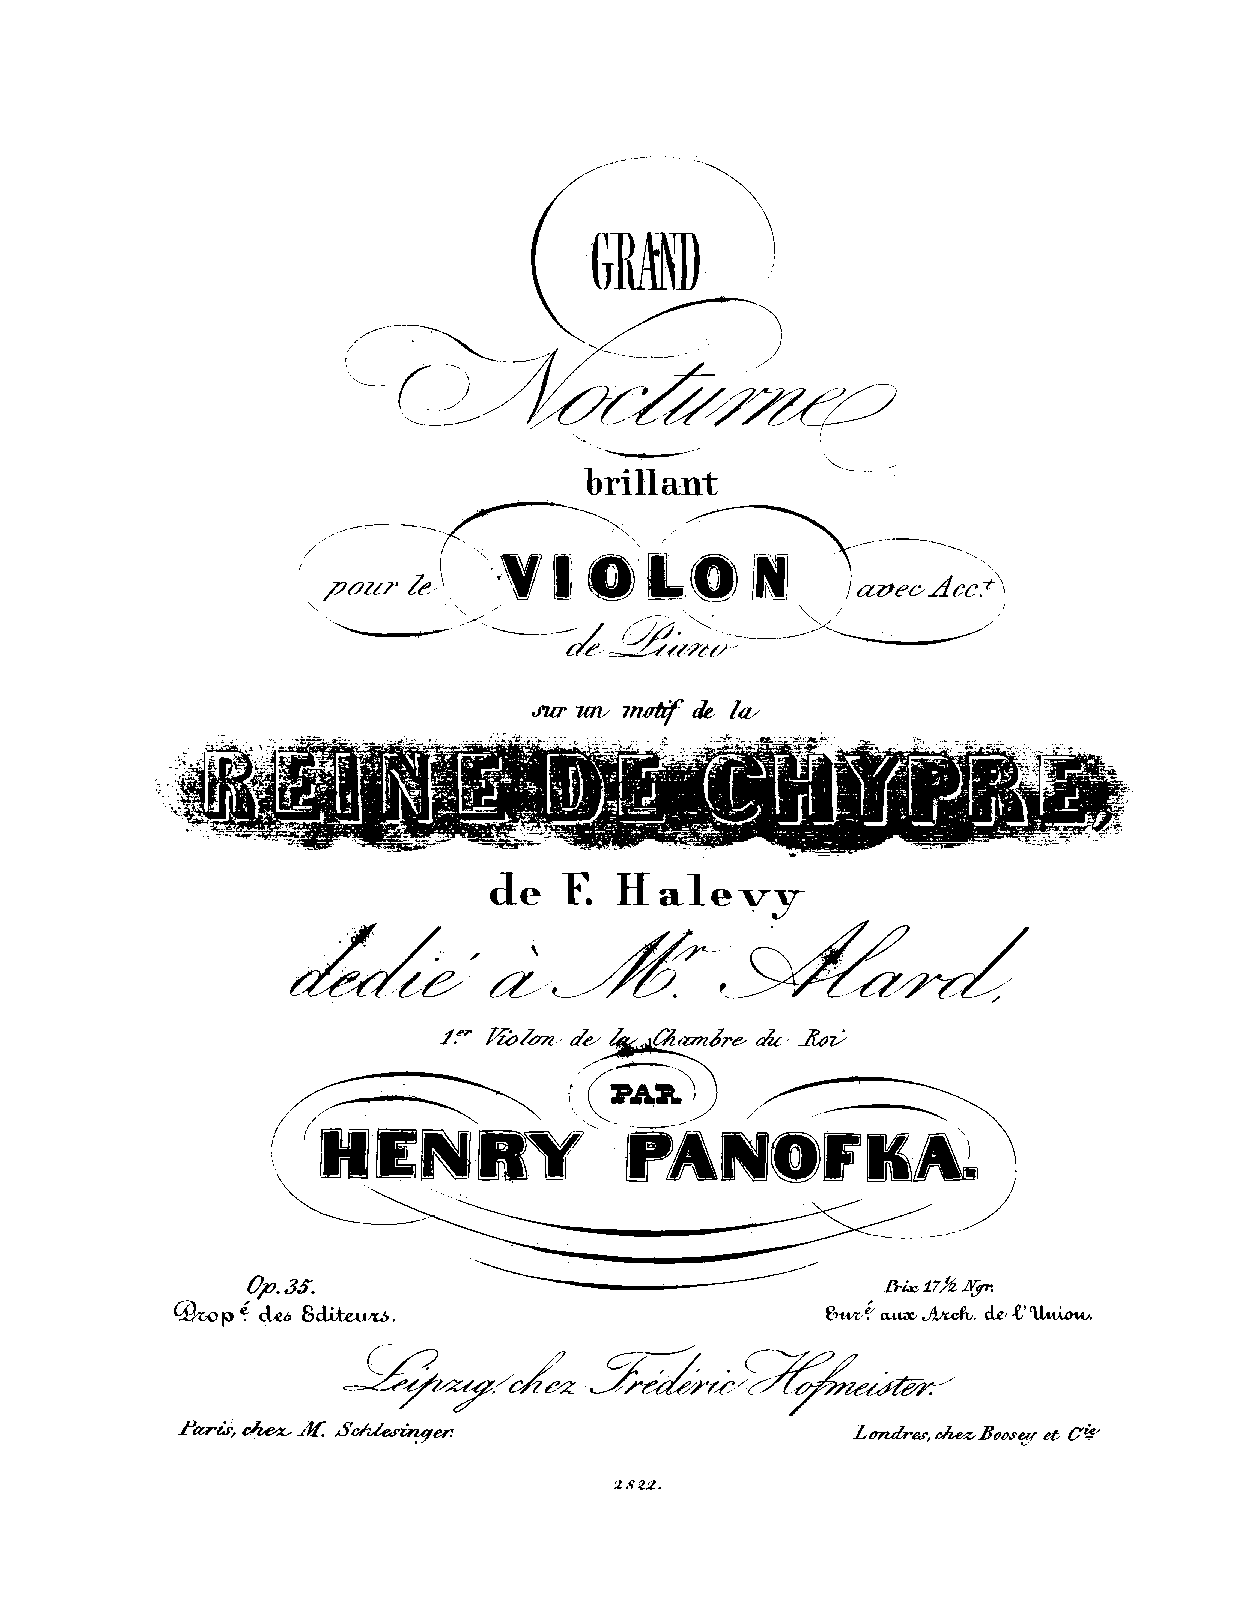 GRAND
Nocturne
brillant
pour le VIOLON avec Acc.t
de Piano
sur un motif de la
REINE DE CHYPRE,
de F. Halevy
dedié à Mr. Alard,
1.er Violon de la Chambre du Roi
PAR
HENRY PANOFKA.
Op. 35. Prix 17½ Ngr.
Prop.é des Editeurs. Enr.é aux Arch. de l'Union.
Leipzig, chez Frédéric Hofmeister.
Paris, chez M. Schlesinger. Londres, chez Boosey et Cie
2822.